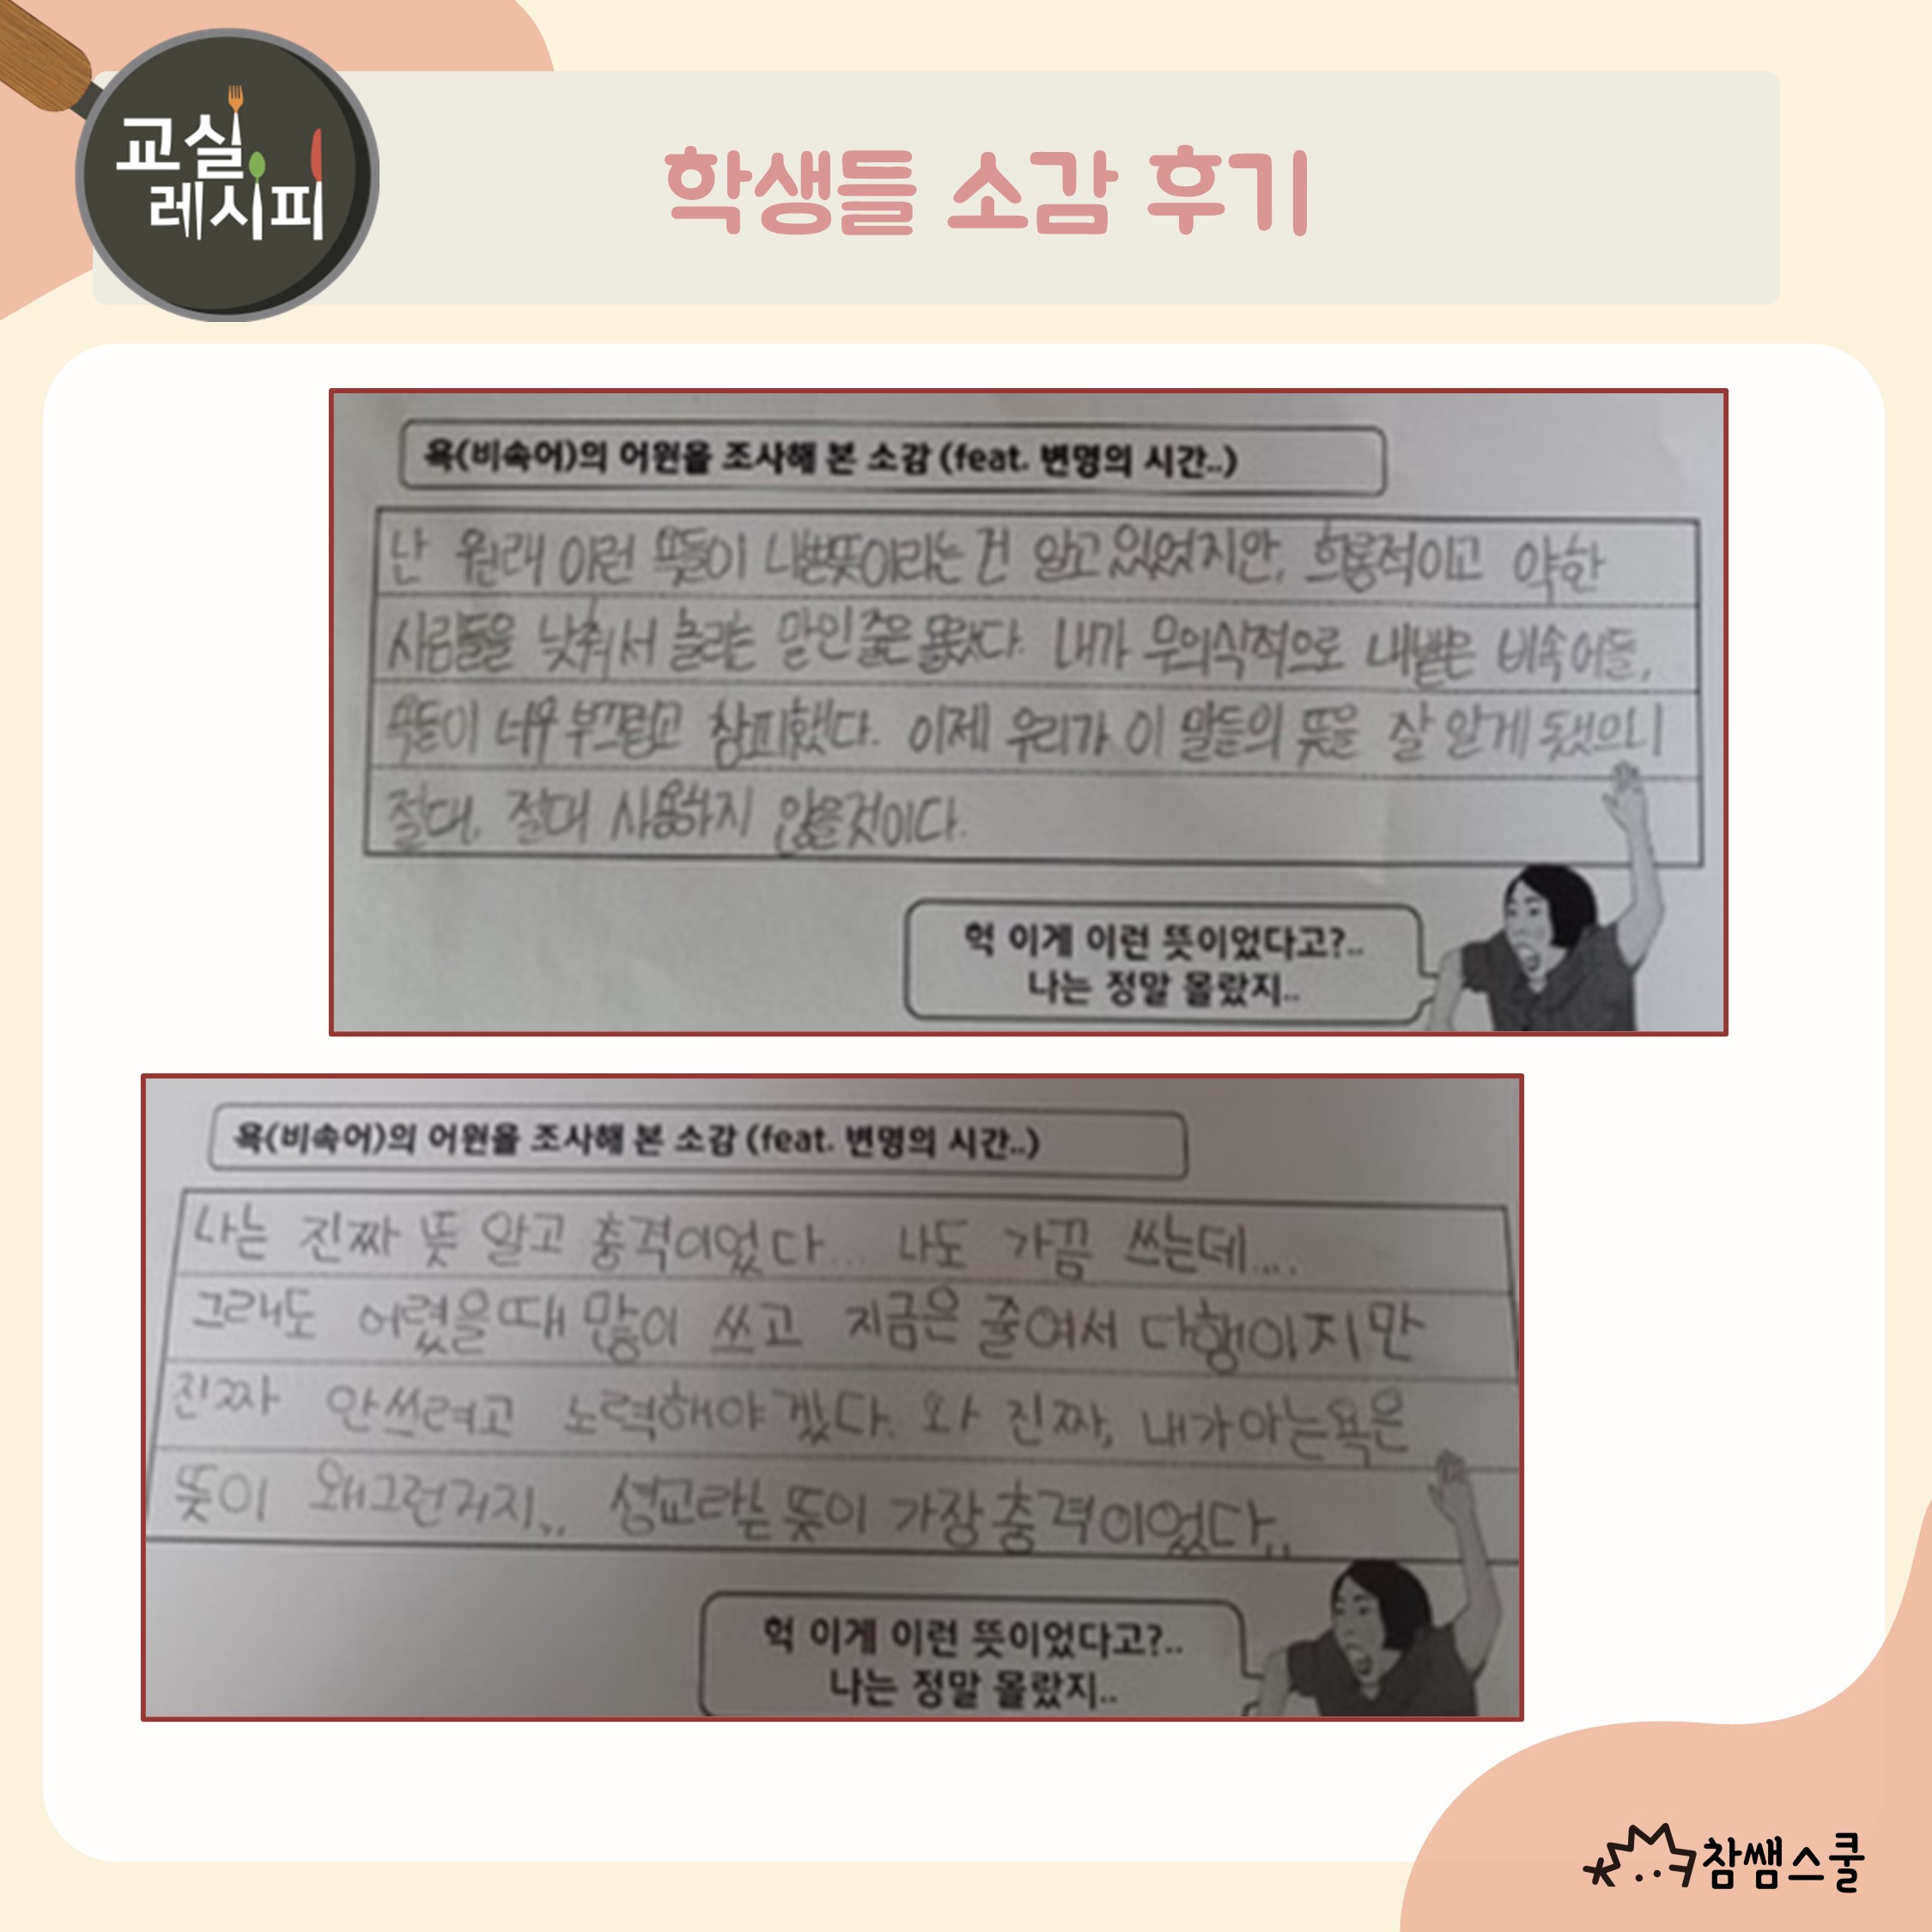 교실
레시피
학생들 소감 후기
욕(비속어)의 어원을 조사해 본 소감 (feat. 변명의 시간..)
난 원래 이런 욕들이 나쁜뜻이라는 건 알고 있었지만, 희롱적이고 약한
사람들을 낮춰서 놀리는 말인줄은 몰랐다. 내가 무의식적으로 내뱉은 비속어들,
욕들이 너무 부끄럽고 창피했다. 이제 우리가 이 말들의 뜻을 잘 알게 됐으니
절대, 절대 사용하지 않을것이다.
헉 이게 이런 뜻이었다고?..
나는 정말 몰랐지..
욕(비속어)의 어원을 조사해 본 소감 (feat. 변명의 시간..)
나는 진짜 뜻 알고 충격이었다... 나도 가끔 쓰는데....
그래도 어렸을때 많이 쓰고 지금은 줄여서 다행이지만
진짜 안쓰려고 노력해야겠다. 와 진짜, 내가아는욕은
뜻이 왜그런거지.. 성교라는 뜻이 가장 충격이었다..
헉 이게 이런 뜻이었다고?..
나는 정말 몰랐지..
참쌤스쿨